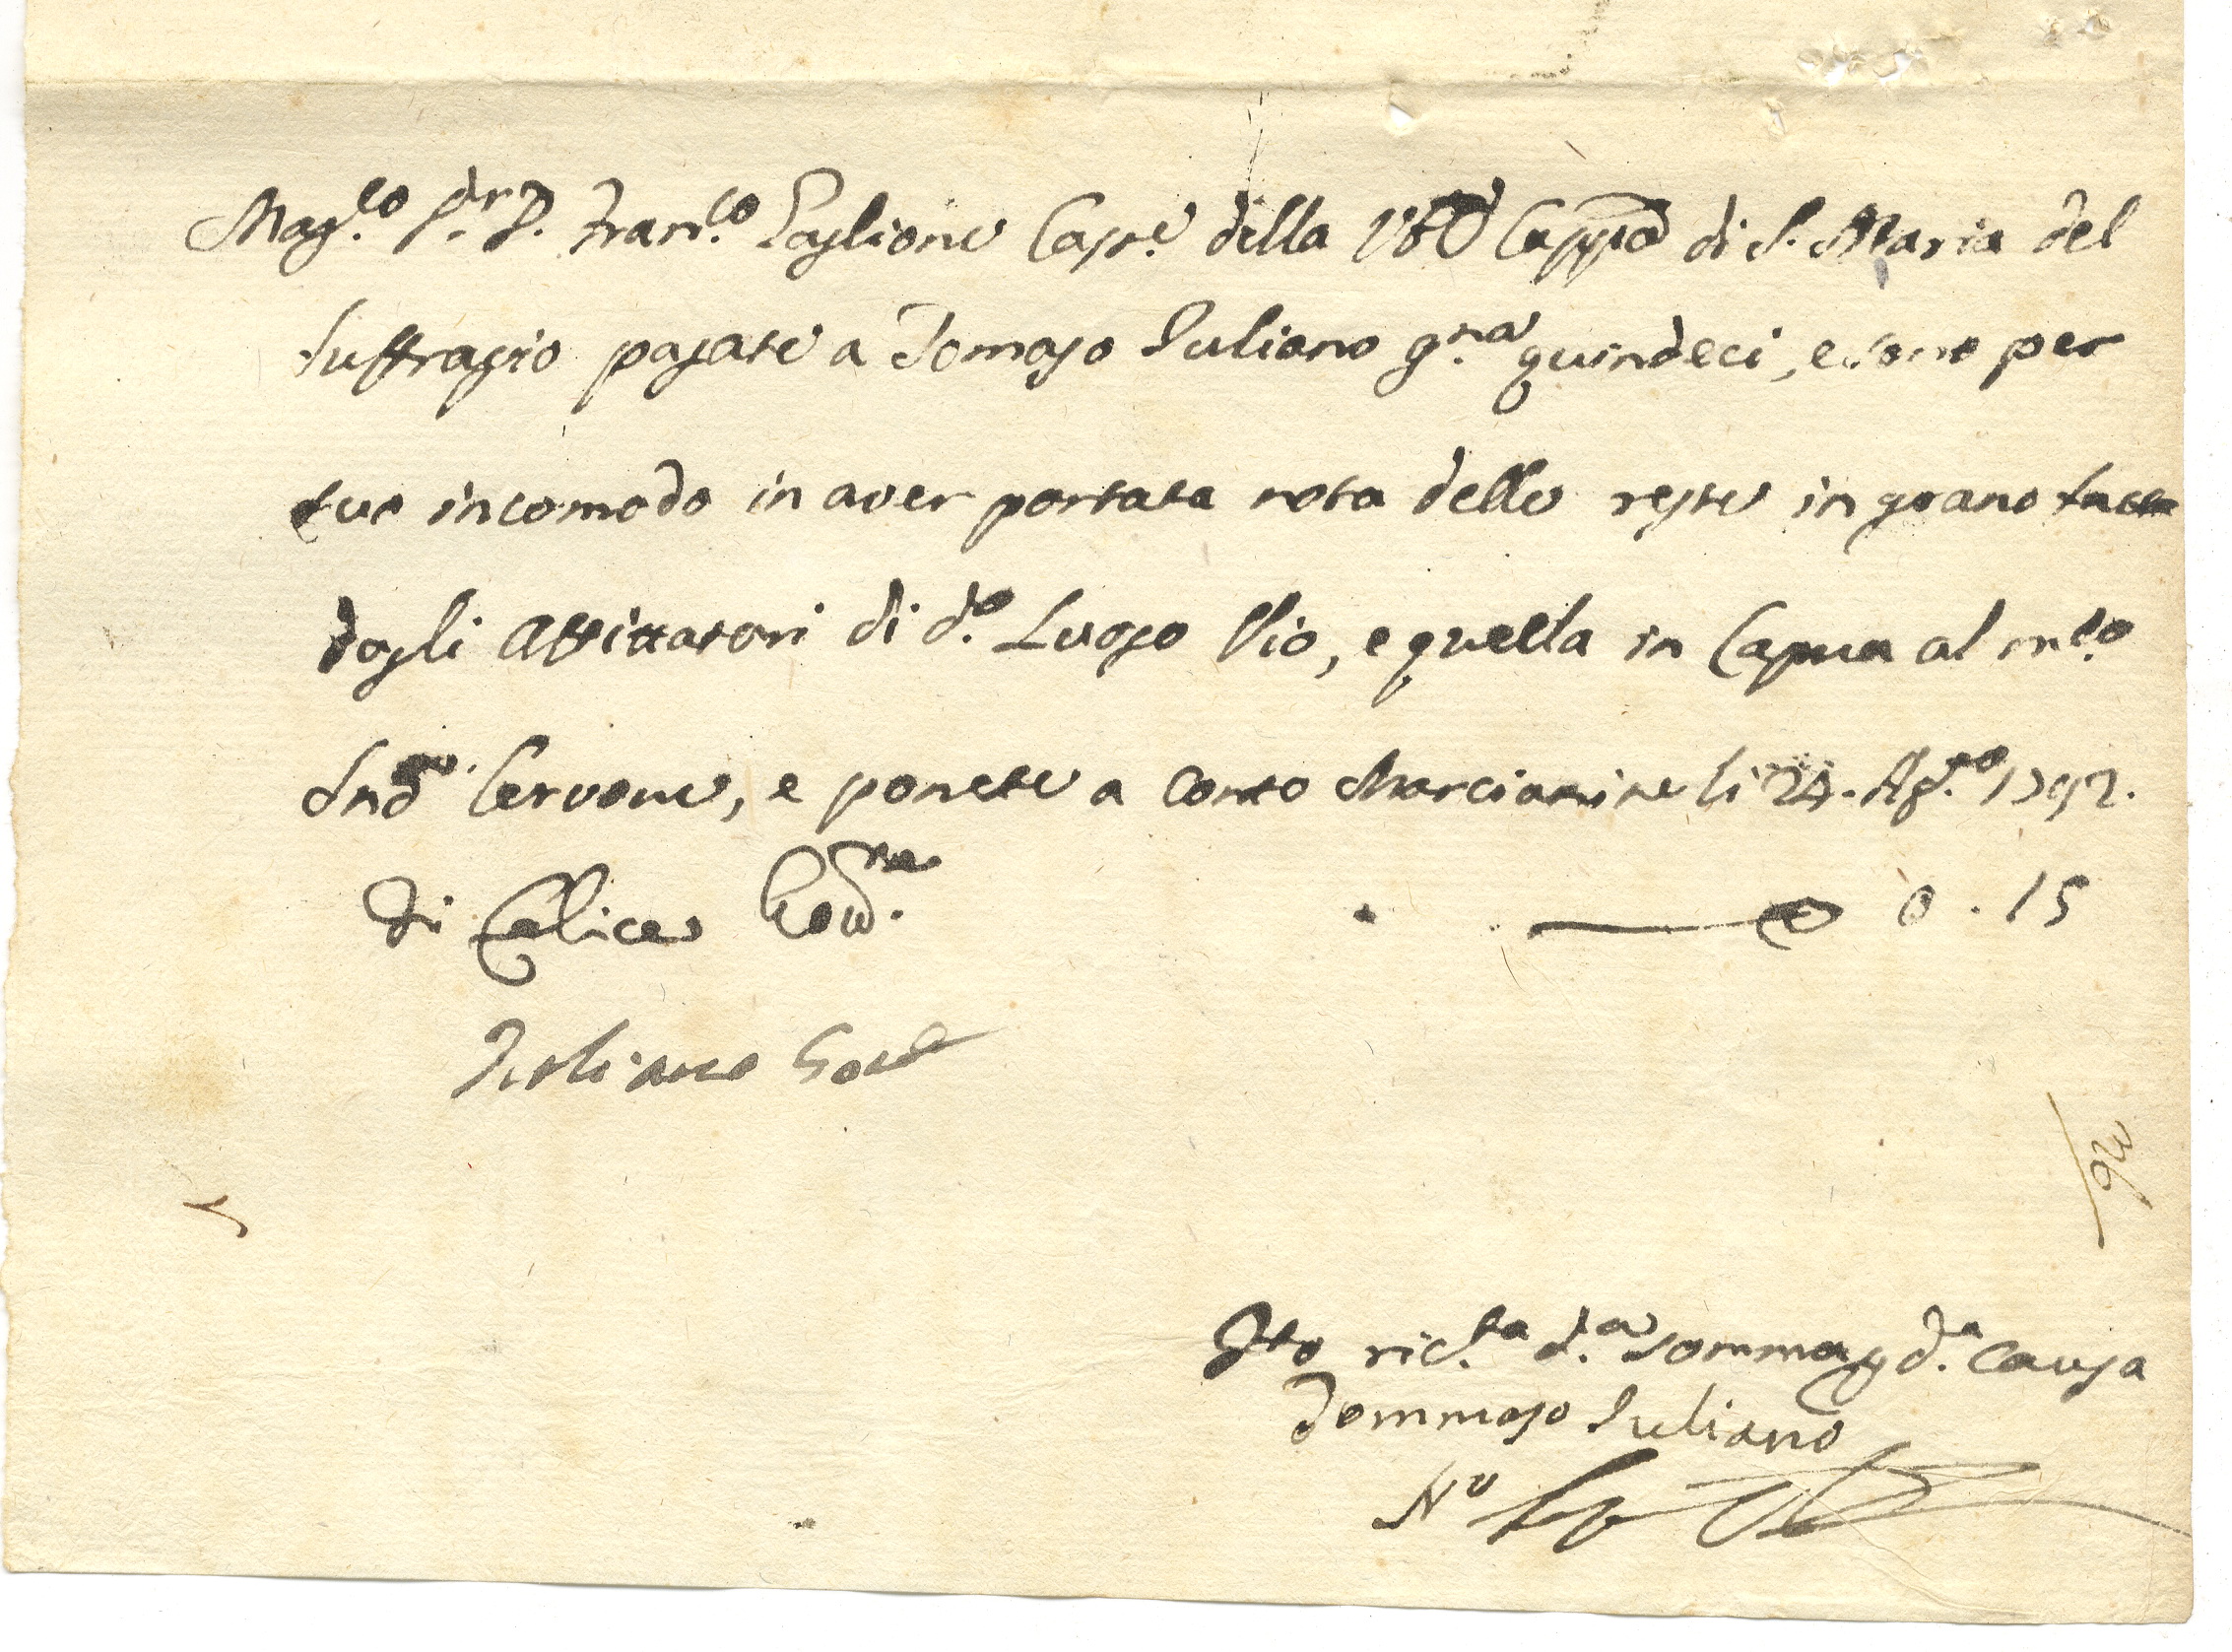 Mag.co S.r D. Fran.co Paglione Cass.e della V.e Capp.a di S. Maria del
Suffragio pagate a Tomaso Iuliano g.na quindeci, e sono per
suo incomodo in aver portata nota delle reste in grano fatta
dagli Affittatori di d.o Luogo Pio, e quella in Capua al m.co
Cervone, e ponete a conto Marcianise li 24. Ag.to 1792.
di Felice Gov.re
0 . 15
Iuliano Gov.
93
Ho ric.ta d.a somma p d.a causa
Tommaso Iuliano
N.o